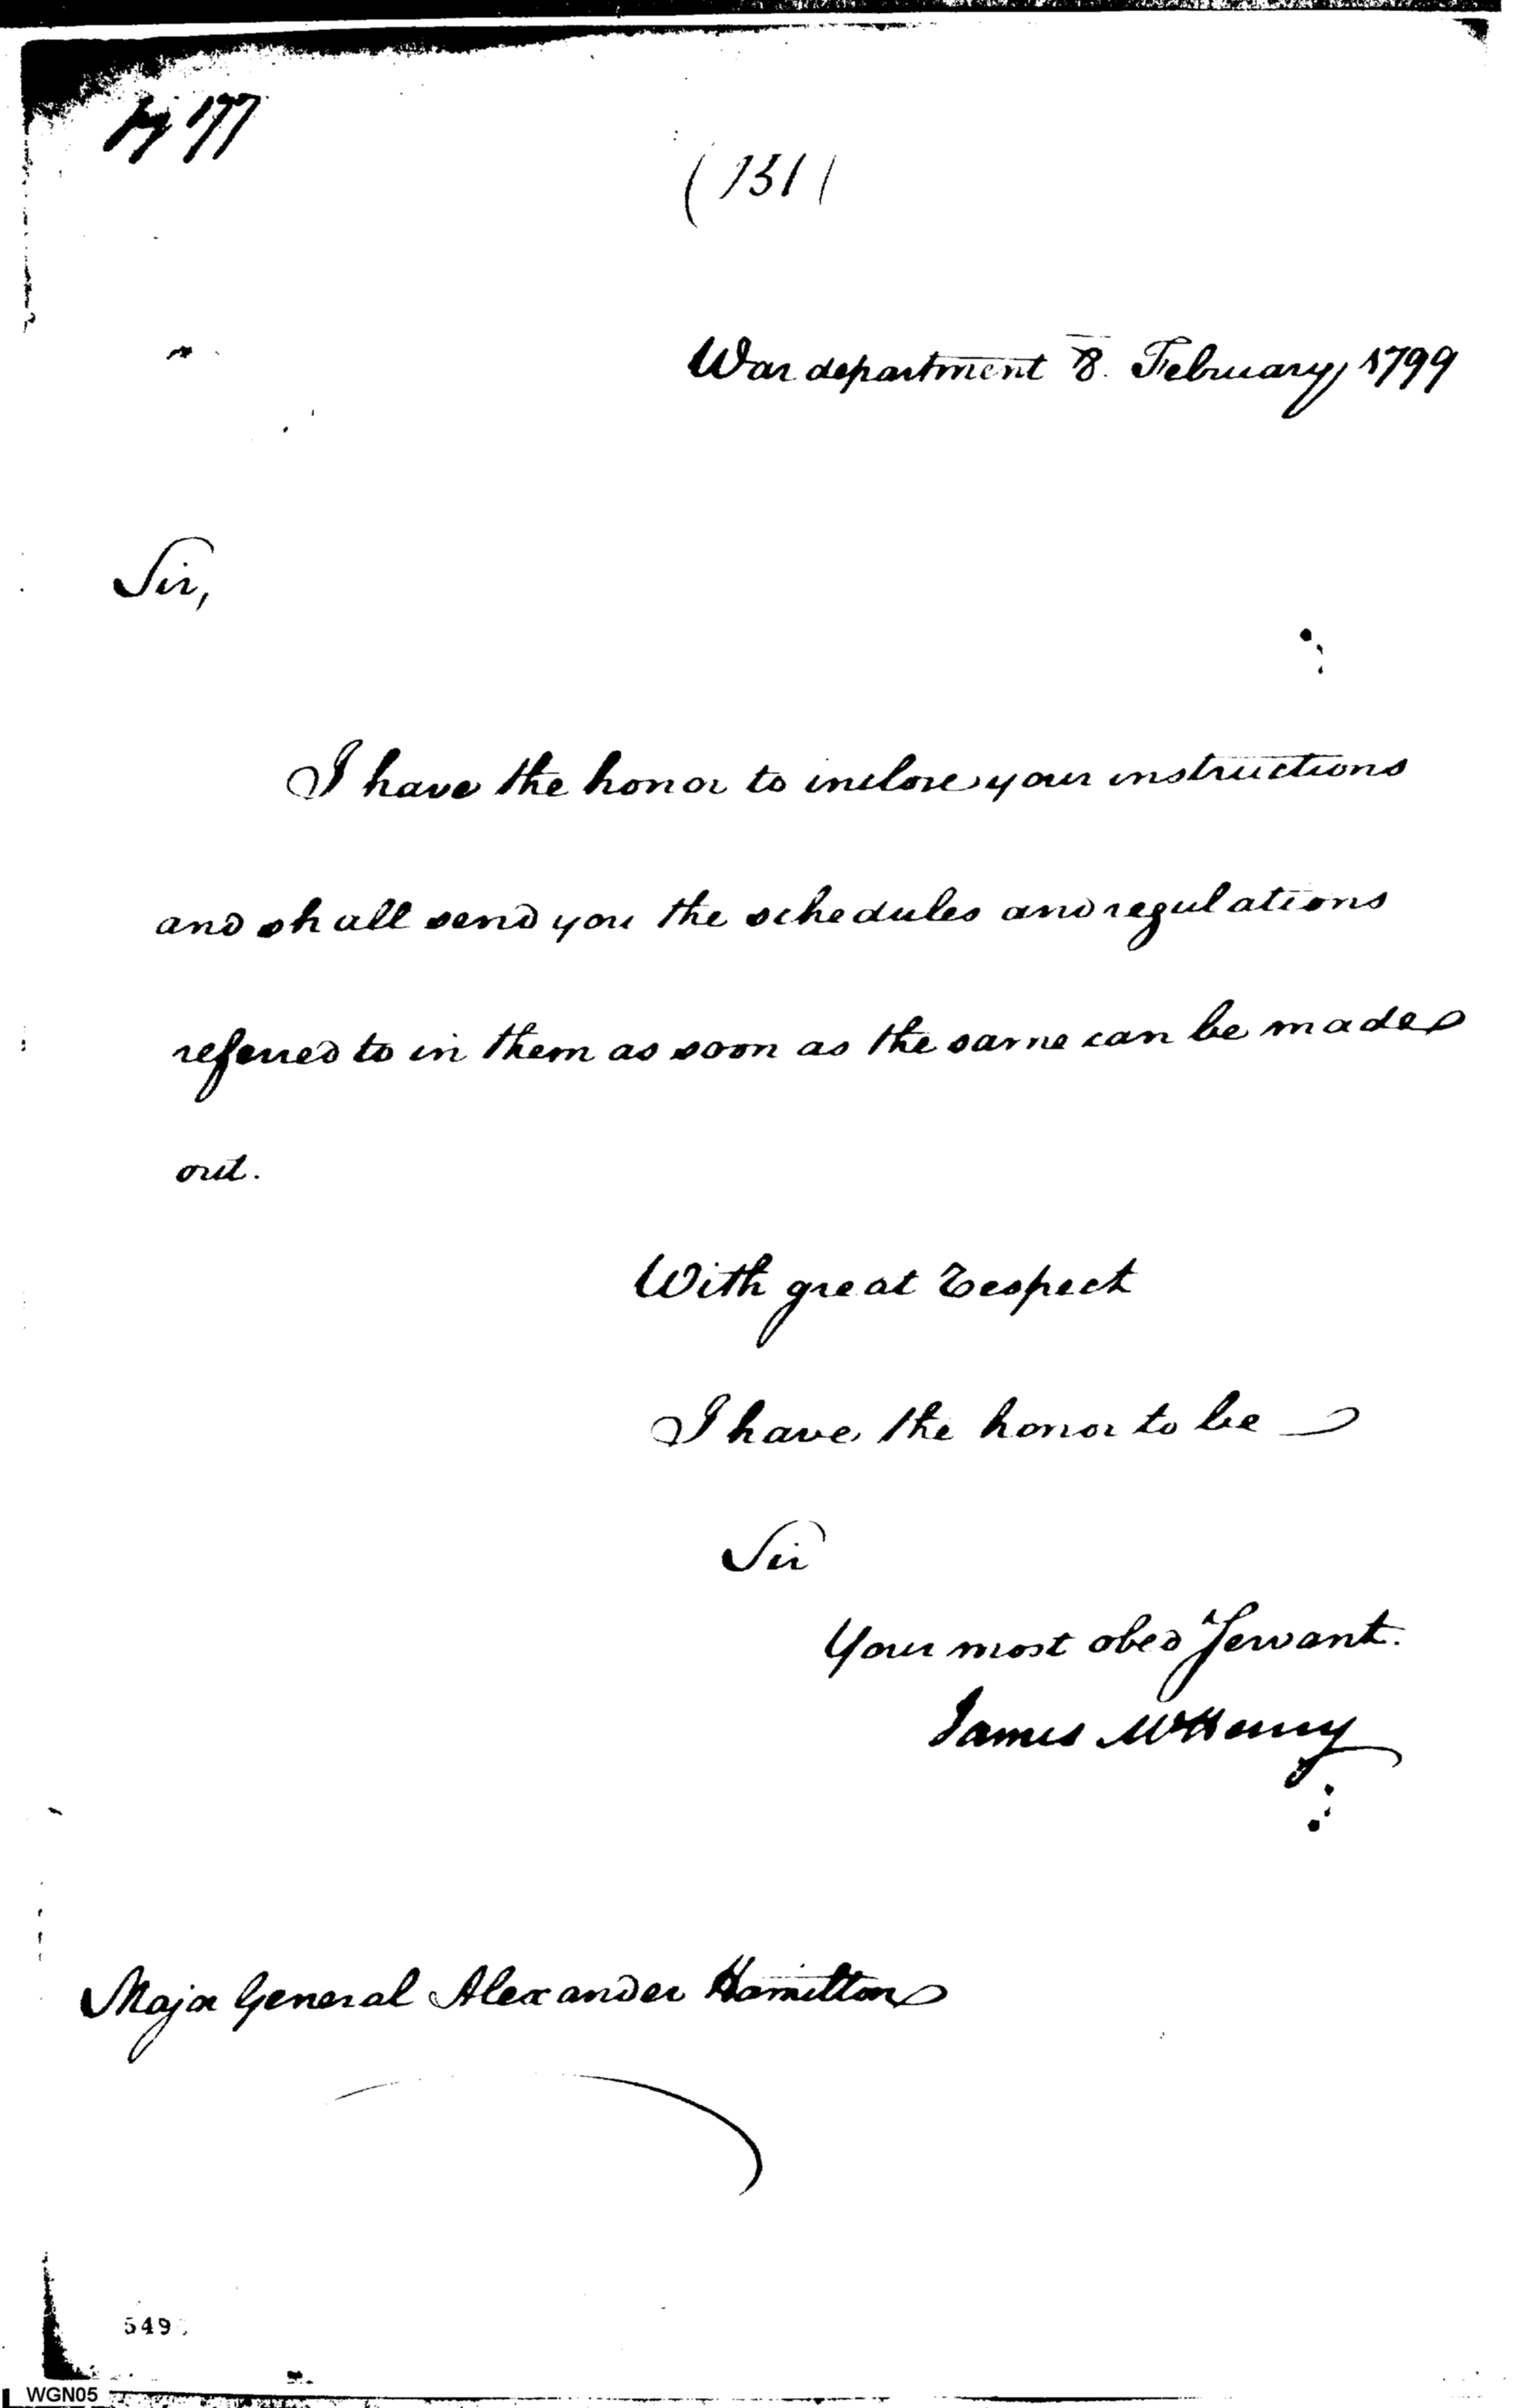 (131(
War department 8. February 1799
Sir,
I have the honor to inclose your instructions
and shall send you the schedules and regulations
referred to in them as soon as the same can be made
out.
With great respect
I have the honor to be
Sir
Your most obed Servant.
James McHenry
Major General Alexander Hamilton
549
WGN05